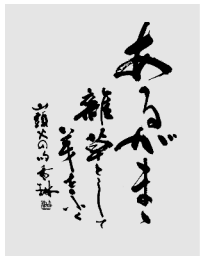 あるがまゝ
雑草として
芽をふく
山頭火の句